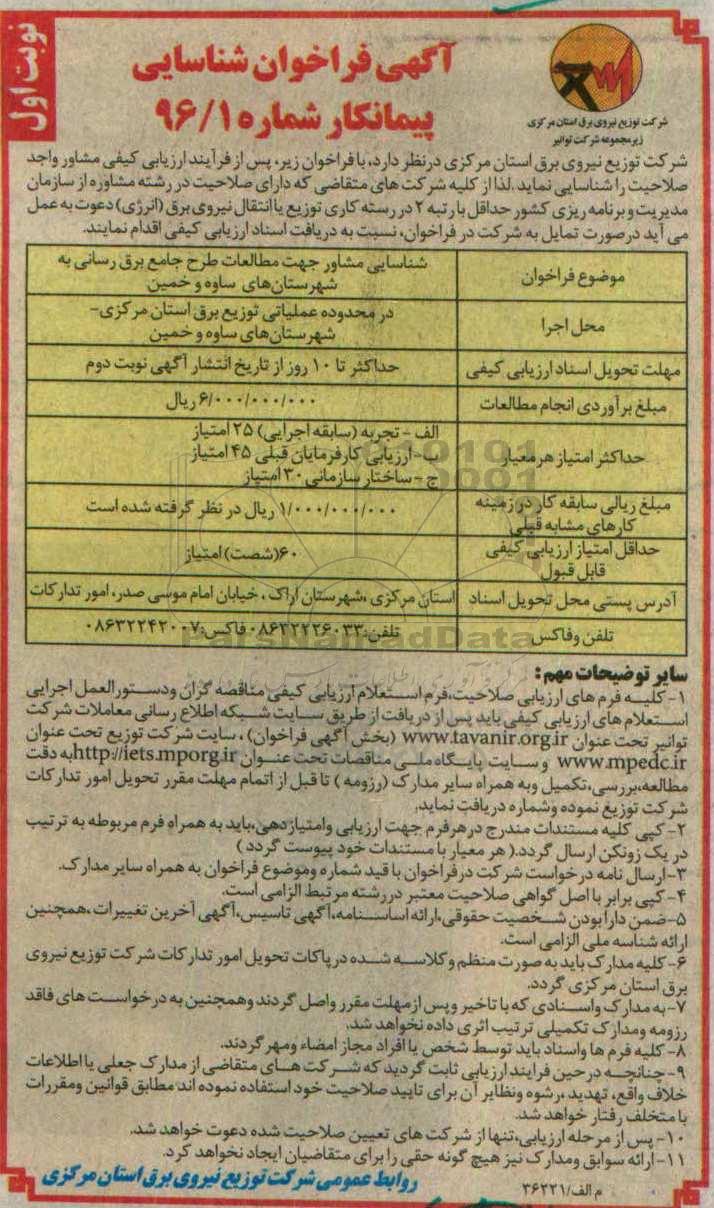 نوبت اول
آگهی فراخوان شناسایی
پیمانکار شماره ۹۶/۱
شرکت توزیع نیروی برق استان مرکزی
زیر مجموعه شرکت توانیر
شرکت توزیع نیروی برق استان مرکزی در نظر دارد، با فراخوان زیر، پس از فرآیند ارزیابی کیفی مشاور واجد
صلاحیت را شناسایی نماید .لذا از کلیه شرکت های متقاضی که دارای صلاحیت در رشته مشاوره از سازمان
مدیریت و برنامه ریزی کشور حداقل با رتبه ۲ در رسته کاری توزیع یا انتقال نیروی برق (انرژی) دعوت به عمل
می آید در صورت تمایل به شرکت در فراخوان، نسبت به دریافت اسناد ارزیابی کیفی اقدام نمایند.
موضوع فراخوان
شناسایی مشاور جهت مطالعات طرح جامع برق رسانی به
شهرستان‌های ساوه و خمین
محل اجرا
در محدوده عملیاتی توزیع برق استان مرکزی-
شهرستان‌های ساوه و خمین
مهلت تحویل اسناد ارزیابی کیفی
حداکثر تا ۱۰ روز از تاریخ انتشار آگهی نوبت دوم
مبلغ برآوردی انجام مطالعات
۶/۰۰۰/۰۰۰/۰۰۰ ریال
حداکثر امتیاز هر معیار
الف - تجربه (سابقه اجرایی) ۲۵ امتیاز
ب-ارزیابی کارفرمایان قبلی ۴۵ امتیاز
ج - ساختار سازمانی ۳۰ امتیاز
مبلغ ریالی سابقه کار در زمینه
کارهای مشابه قبلی
۱/۰۰۰/۰۰۰/۰۰۰ ریال در نظر گرفته شده است
حداقل امتیاز ارزیابی کیفی
قابل قبول
۶۰(شصت) امتیاز
آدرس پستی محل تحویل اسناد
استان مرکزی ،شهرستان اراک ، خیابان امام موسی صدر، امور تدارکات
تلفن و فاکس
تلفن:۰۸۶۳۲۲۲۶۰۳۳ فاکس:۰۸۶۳۲۲۴۲۰۰۷
ParsNamadData
سایر توضیحات مهم:
۱- کلیه فرم های ارزیابی صلاحیت،فرم استعلام ارزیابی کیفی مناقصه گران ودستورالعمل اجرایی
استعلام های ارزیابی کیفی باید پس از دریافت از طریق سایت شبکه اطلاع رسانی معاملات شرکت
توانیر تحت عنوان www.tavanir.org.ir (بخش آگهی فراخوان) ، سایت شرکت توزیع تحت عنوان
www.mpedc.ir و سایت پایگاه ملی مناقصات تحت عنوان http://iets.mporg.irبه دقت
مطالعه،بررسی،تکمیل وبه همراه سایر مدارک (رزومه ) تا قبل از اتمام مهلت مقرر تحویل امور تدارکات
شرکت توزیع نموده وشماره دریافت نماید.
۲- کپی کلیه مستندات مندرج در هر فرم جهت ارزیابی وامتیازدهی،باید به همراه فرم مربوطه به ترتیب
در یک زونکن ارسال گردد.( هر معیار با مستندات خود پیوست گردد )
۳-ارسال نامه درخواست شرکت درفراخوان با قید شماره وموضوع فراخوان به همراه سایر مدارک.
۴- کپی برابر با اصل گواهی صلاحیت معتبر دررشته مرتبط الزامی است.
۵-ضمن دارا بودن شخصیت حقوقی،ارائه اساسنامه،آگهی تاسیس،آگهی آخرین تغییرات ،همچنین
ارائه شناسه ملی الزامی است.
۶- کلیه مدارک باید به صورت منظم وکلاسه شده درپاکات تحویل امور تدارکات شرکت توزیع نیروی
برق استان مرکزی گردد.
۷-به مدارک واسنادی که با تاخیر وپس ازمهلت مقرر واصل گردند وهمچنین به درخواست های فاقد
رزومه ومدارک تکمیلی ترتیب اثری داده نخواهد شد.
۸- کلیه فرم ها واسناد باید توسط شخص یا افراد مجاز امضاء ومهر گردند.
۹-چنانچه درحین فرایند ارزیابی ثابت گردید که شرکت های متقاضی از مدارک جعلی یا اطلاعات
خلاف واقع، تهدید ،رشوه ونظایر آن برای تایید صلاحیت خود استفاده نموده اند،مطابق قوانین ومقررات
با متخلف رفتار خواهد شد.
۱۰- پس از مرحله ارزیابی،تنها از شرکت های تعیین صلاحیت شده دعوت خواهد شد.
۱۱-ارائه سوابق ومدارک نیز هیچ گونه حقی را برای متقاضیان ایجاد نخواهد کرد.
روابط عمومی شرکت توزیع نیروی برق استان مرکزی
م الف/۳۶۳۲۱